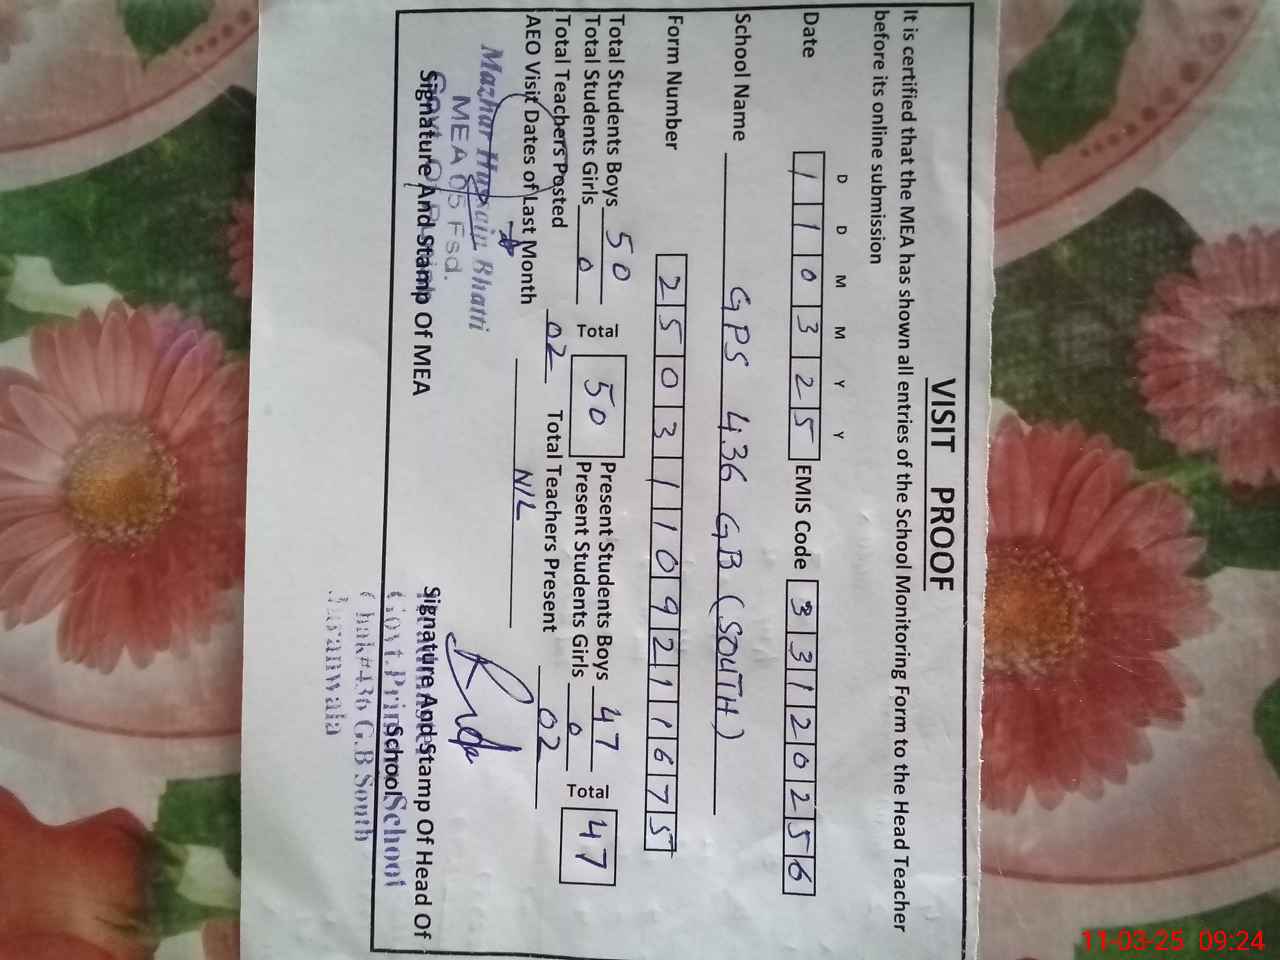 VISIT PROOF
It is certified that the MEA has shown all entries of the School Monitoring Form to the Head Teacher
before its online submission
D D M M Y Y
Date 110325 EMIS Code 33120256
School Name GPS 436 GB (SOUTH)
Form Number 25031109211675
Total Students Boys 50 Total 50 Present Students Boys 47 Total 47
Total Students Girls 0 Present Students Girls 0
Total Teachers Posted 02 Total Teachers Present 02
AEO Visit Dates of Last Month NIL
Mazhar Hussain Bhatti
MEA 05 Fsd.
Signature And Stamp Of MEA
Signature And Stamp Of Head Of
School
Govt. Primary School
Chak#436 G.B South
Jaranwala
11-03-25 09:24